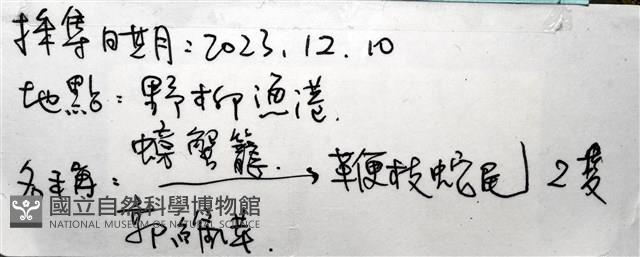 採集日期:2023.12.10
地點:野柳漁港
螃蟹籠.
名稱: → 鞭枝蛇尾 2隻
國立自然科學博物館
NATIONAL MUSEUM OF NATURAL SCIENCE